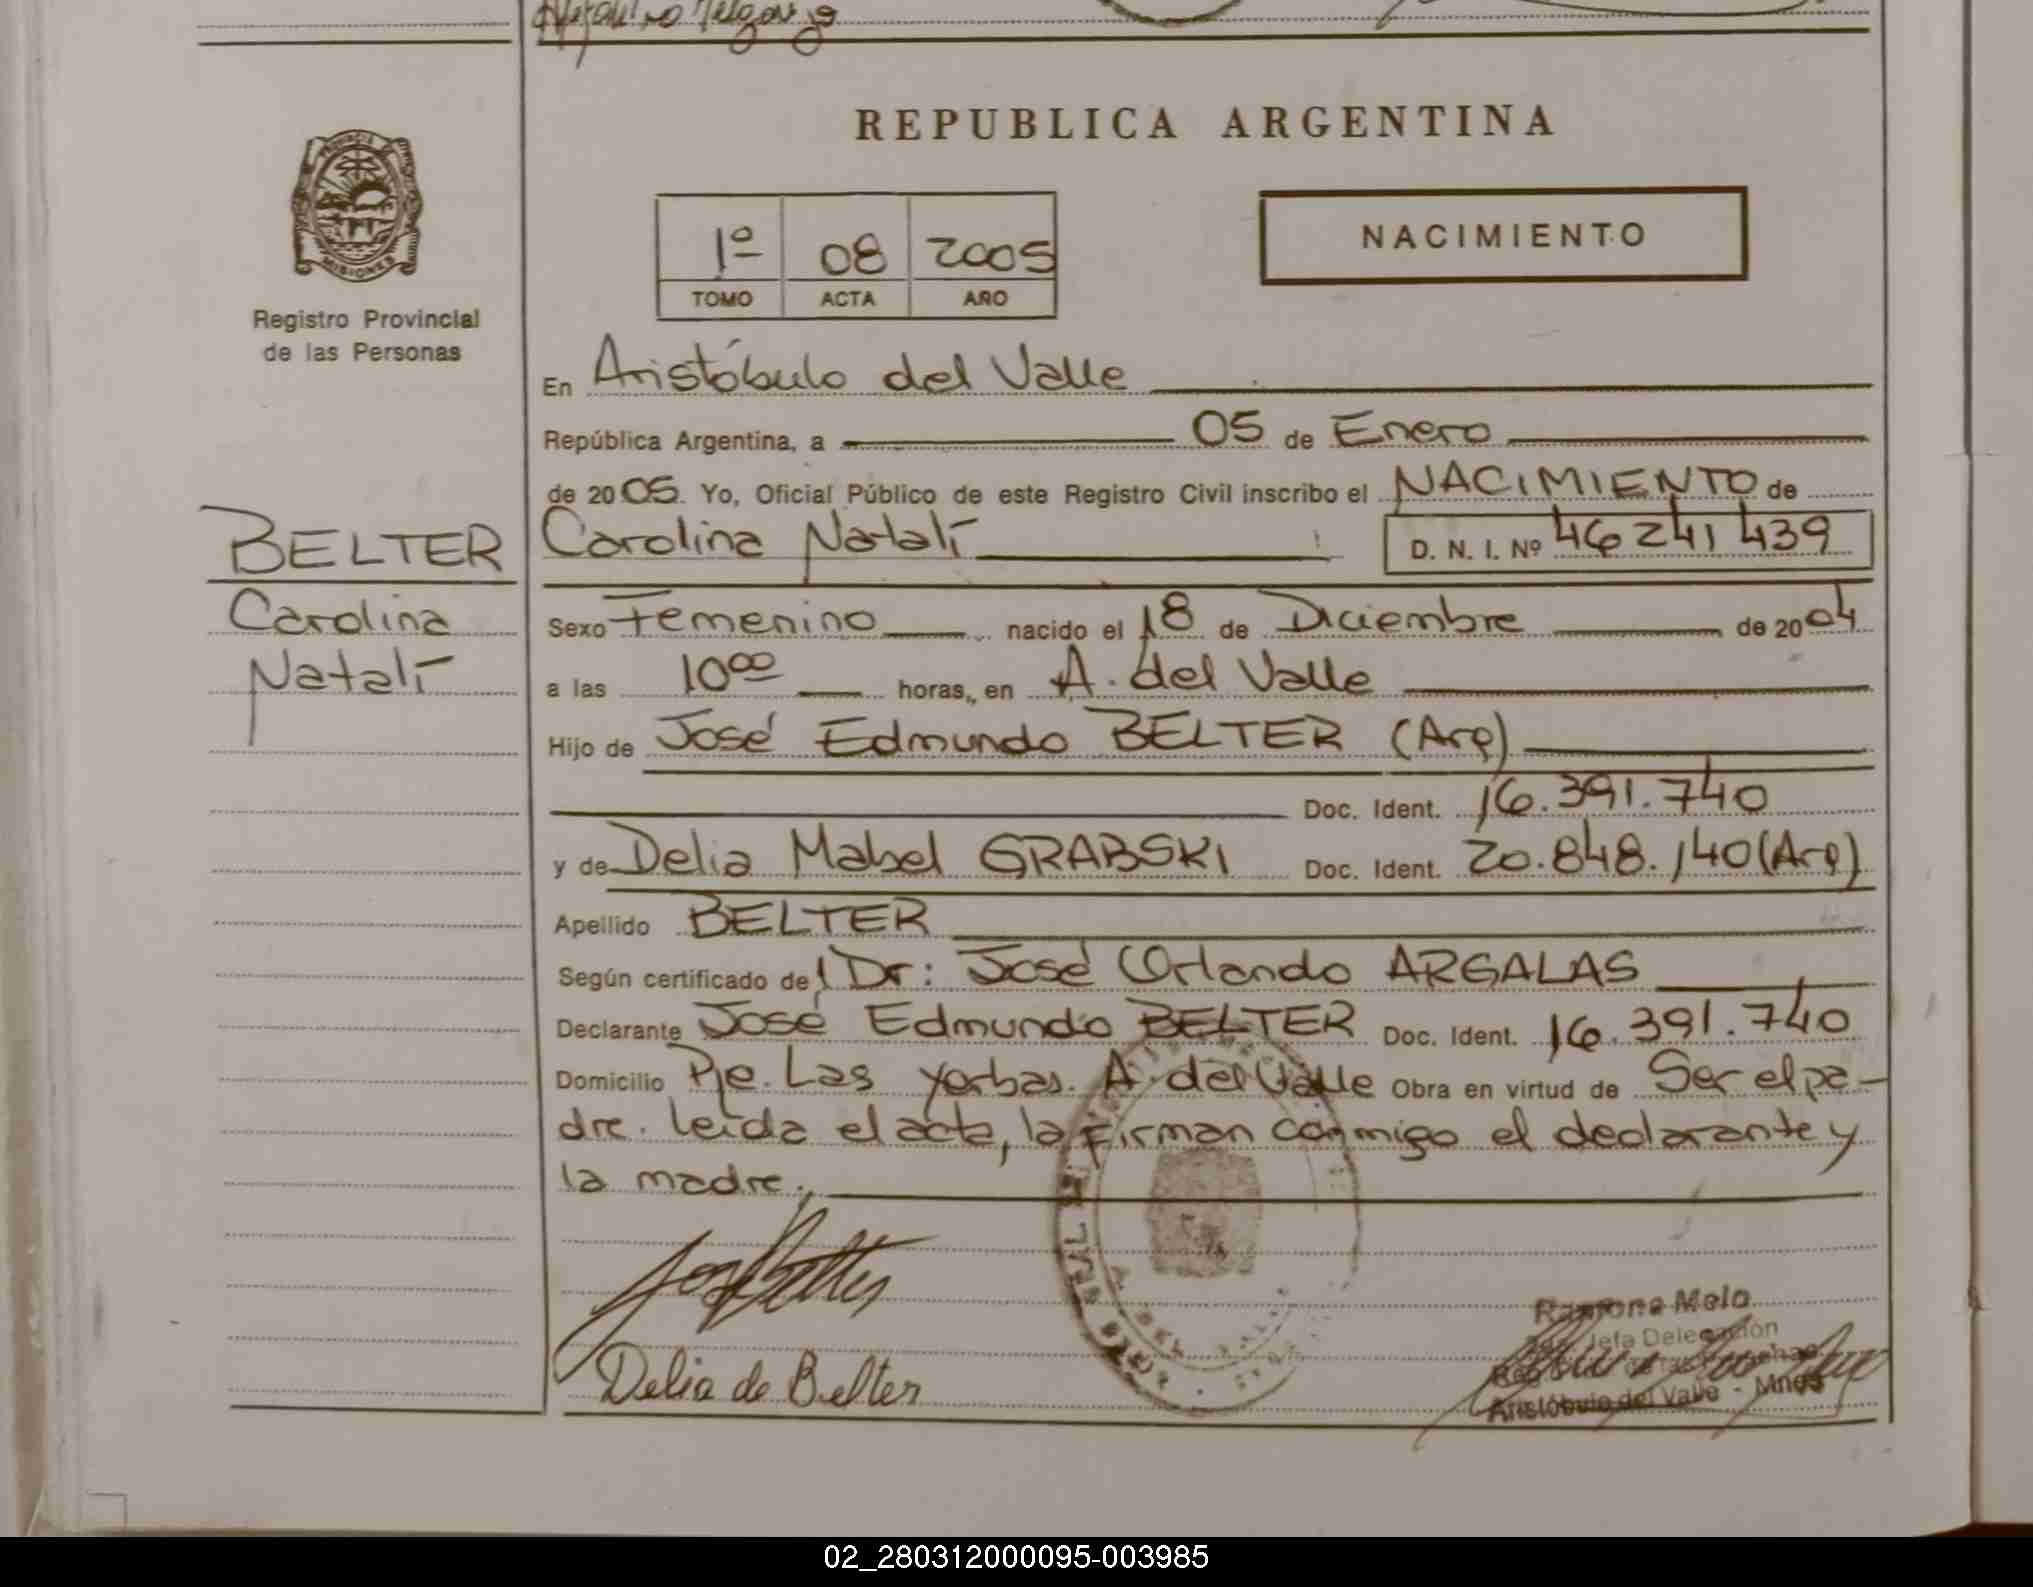 REPUBLICA ARGENTINA
MISIONES
Registro Provincial
de las Personas
1º 08 2005
TOMO ACTA AÑO
NACIMIENTO
En Aristóbulo del Valle
República Argentina, a 05 de Enero
de 2005. Yo, Oficial Público de este Registro Civil inscribo el NACIMIENTO de
BELTER
Carolina
Natalí
Carolina Natalí D. N. I. Nº 46241439
Sexo Femenino nacido el 18 de Diciembre de 2004
a las 10⁰⁰ horas, en A. del Valle
Hijo de José Edmundo BELTER (Arg)
Doc. Ident. 16.391.740
y de Delia Mabel GRABSKI Doc. Ident. 20.848.140 (Arg)
Apellido BELTER
Según certificado del Dr: José Orlando ARGALAS
Declarante José Edmundo BELTER Doc. Ident. 16.391.740
Domicilio Pje. Las Yerbas. A. del Valle Obra en virtud de Ser el pa-
dre. leída el acta, la firman conmigo el declarante y
la madre.
Delia de Belter
Ramona Melo
Jefa Delegación
Aristóbulo del Valle - Mnes
02_280312000095-003985